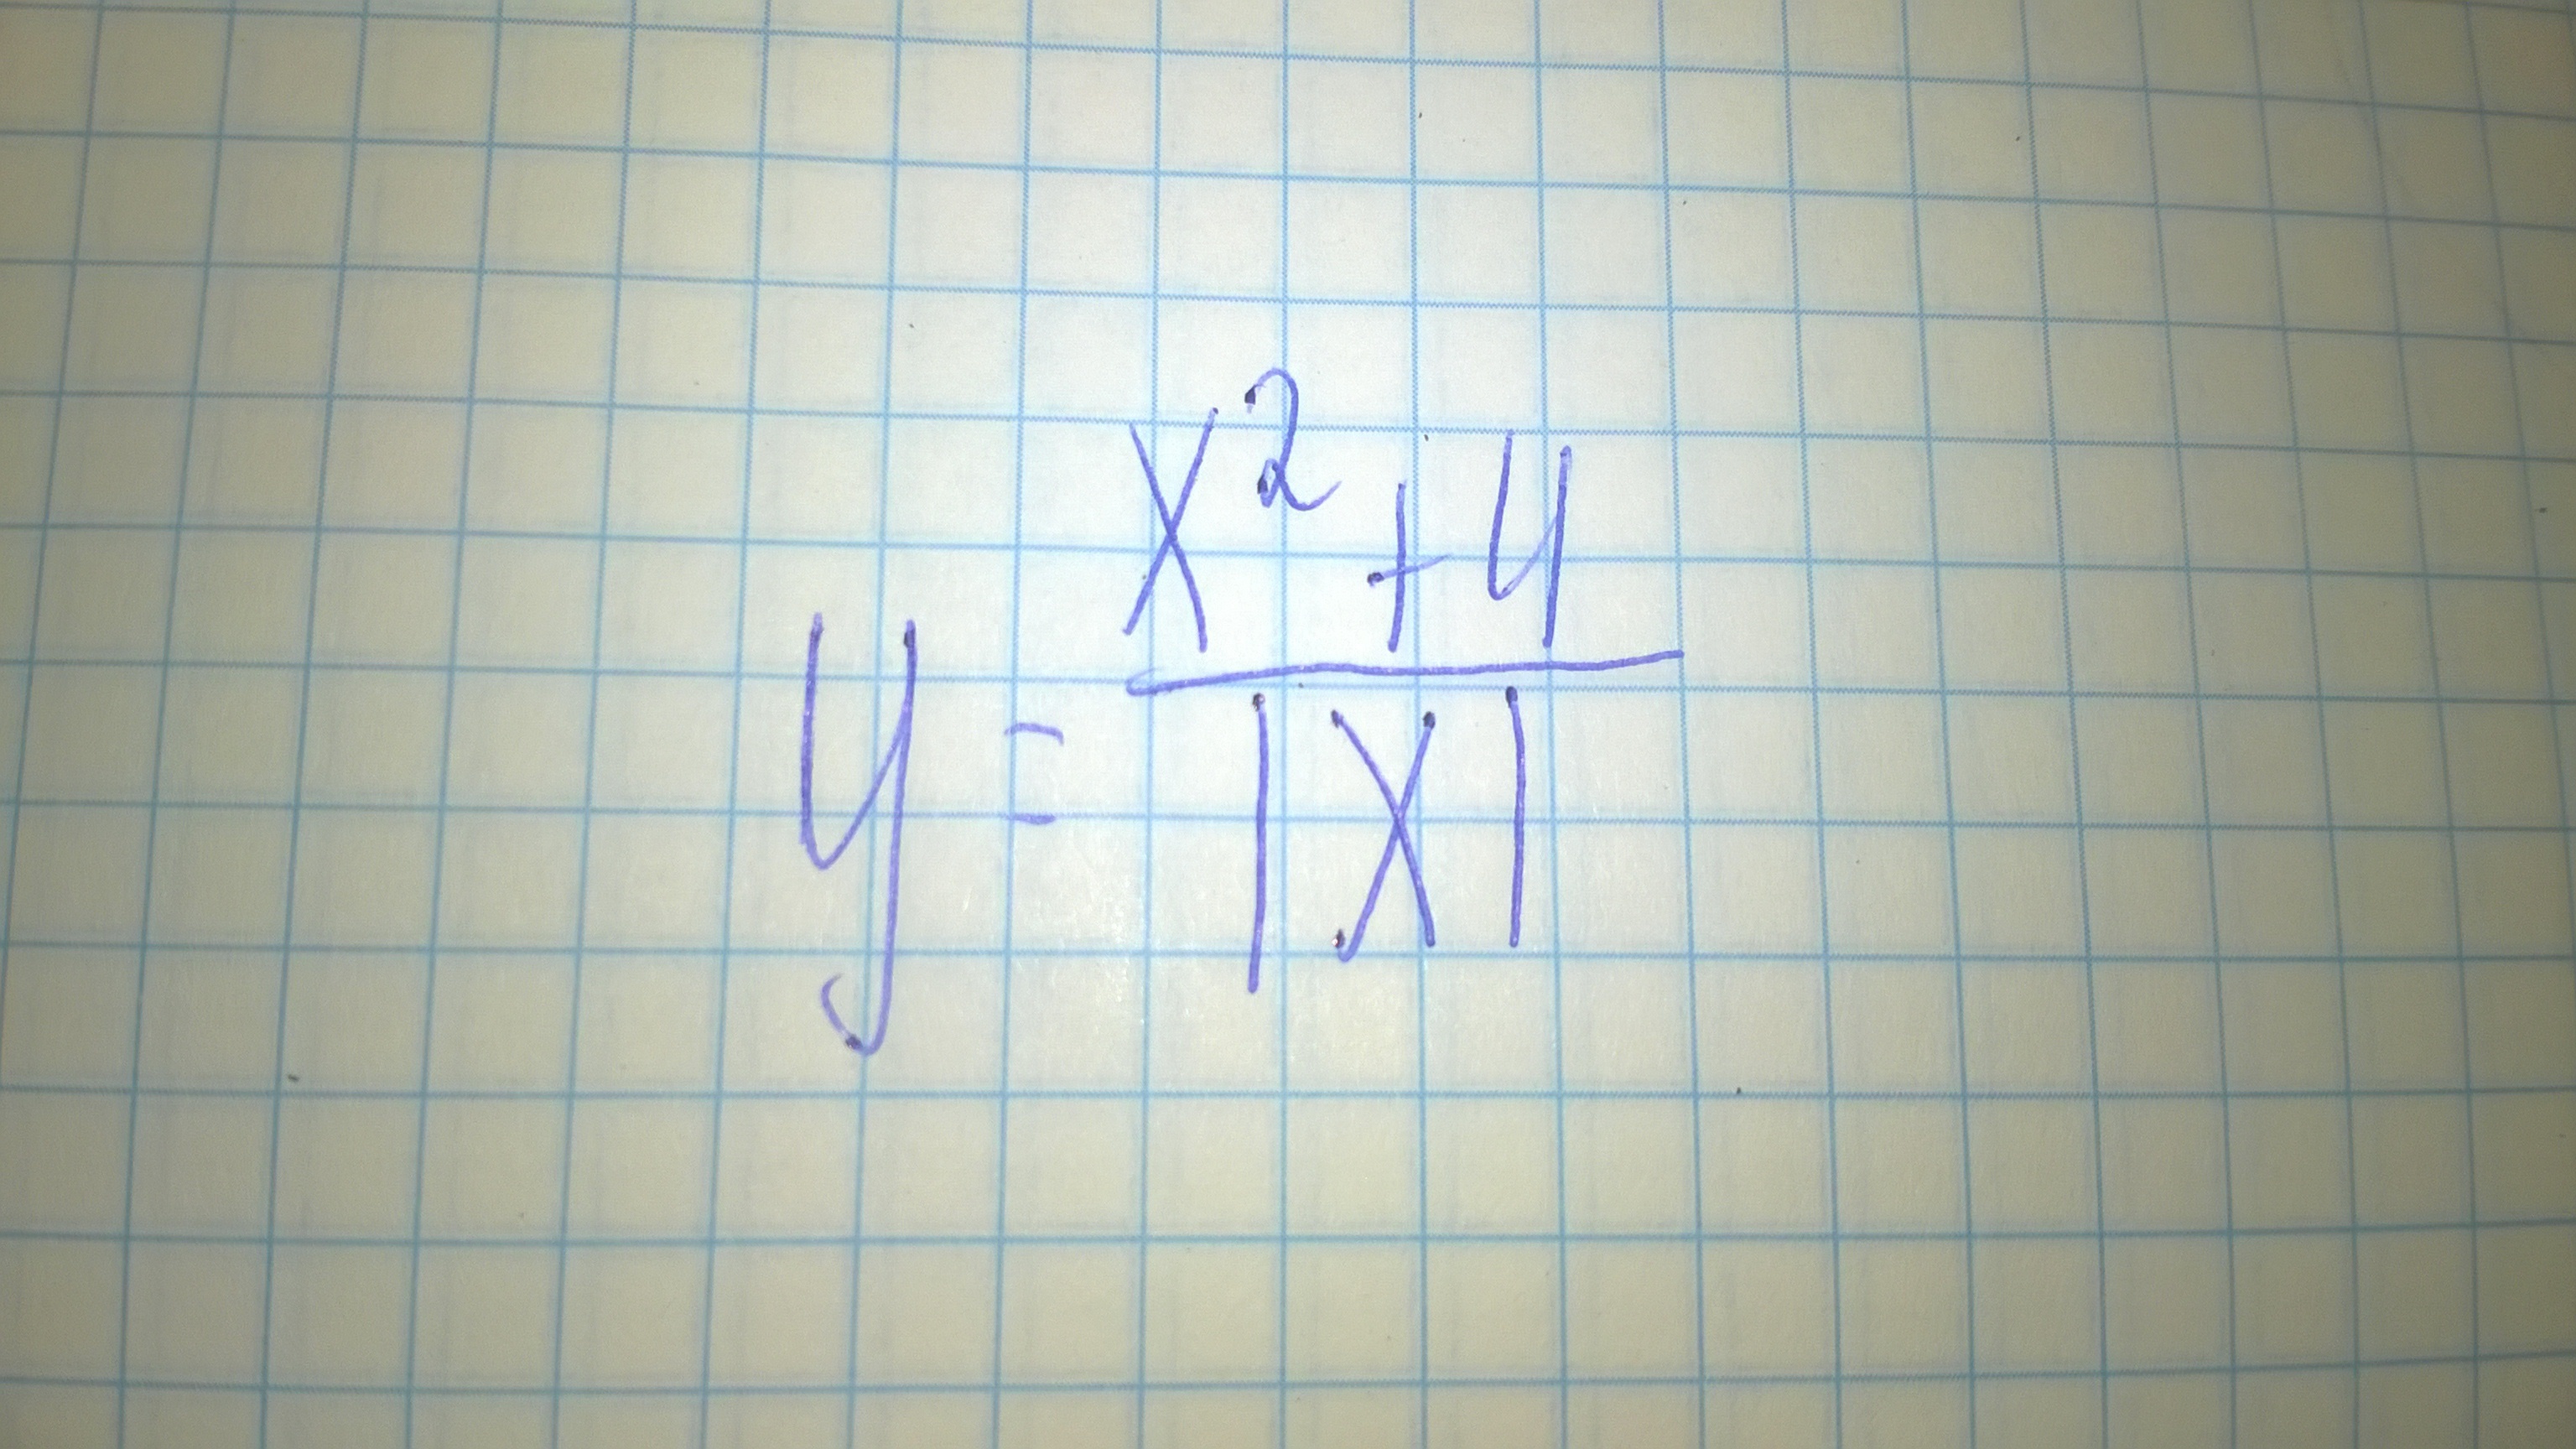 y = (x² + 4) / |x|